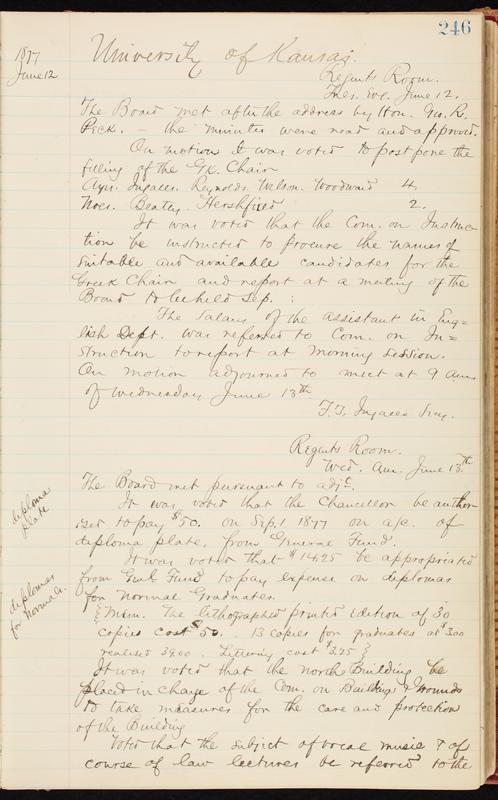 246
1877
June 12
University of Kansas.
Regents Room.
Tues. Eve. June 12.
The Board met after the address by Hon. Geo. R.
Peck. – the minutes were read and approved.
On motion it was voted to postpone the
filling of the Gk. Chair
Ayes. Ingalls. Reynolds. Wilson. Woodward 4.
Noes. Beatty. Hershfield 2.
It was voted that the Com. on Instruc-
tion be instructed to procure the names of
suitable and available candidates for the
Greek Chair and report at a meeting of the
Board to be held Sep. :
The Salary of the assistant in Eng=
lish Dept. was referred to Com. on In=
struction to report at morning session.
On motion adjourned to meet at 9 am
of Wednesday June 13th
F.T. Ingalls Secy.
Regents Room.
Wed. Am. June 13th
The Board met pursuant to adj.
diploma
plate
It was voted that the Chancellor be author
ised to pay $50. on Sep. 1 1877 on a/c. of
diploma plate, from General Fund.
It was voted that $14.25 be appropriated
from Genl Fund to pay expense on diplomas
for Normal Graduates.
diplomas
for Normals.
{Mem. The lithographed printed edition of 30
copies cost $50. . 13 copies for graduates at $3.00
realized 39.00 . Lettering cost $3.25}
It was voted that the North Building be
placed in charge of the Com. on Buildings & Grounds
to take measures for the care and protection
of the Building
Voted that the subject of vocal music & of
course of law lectures be referred to the